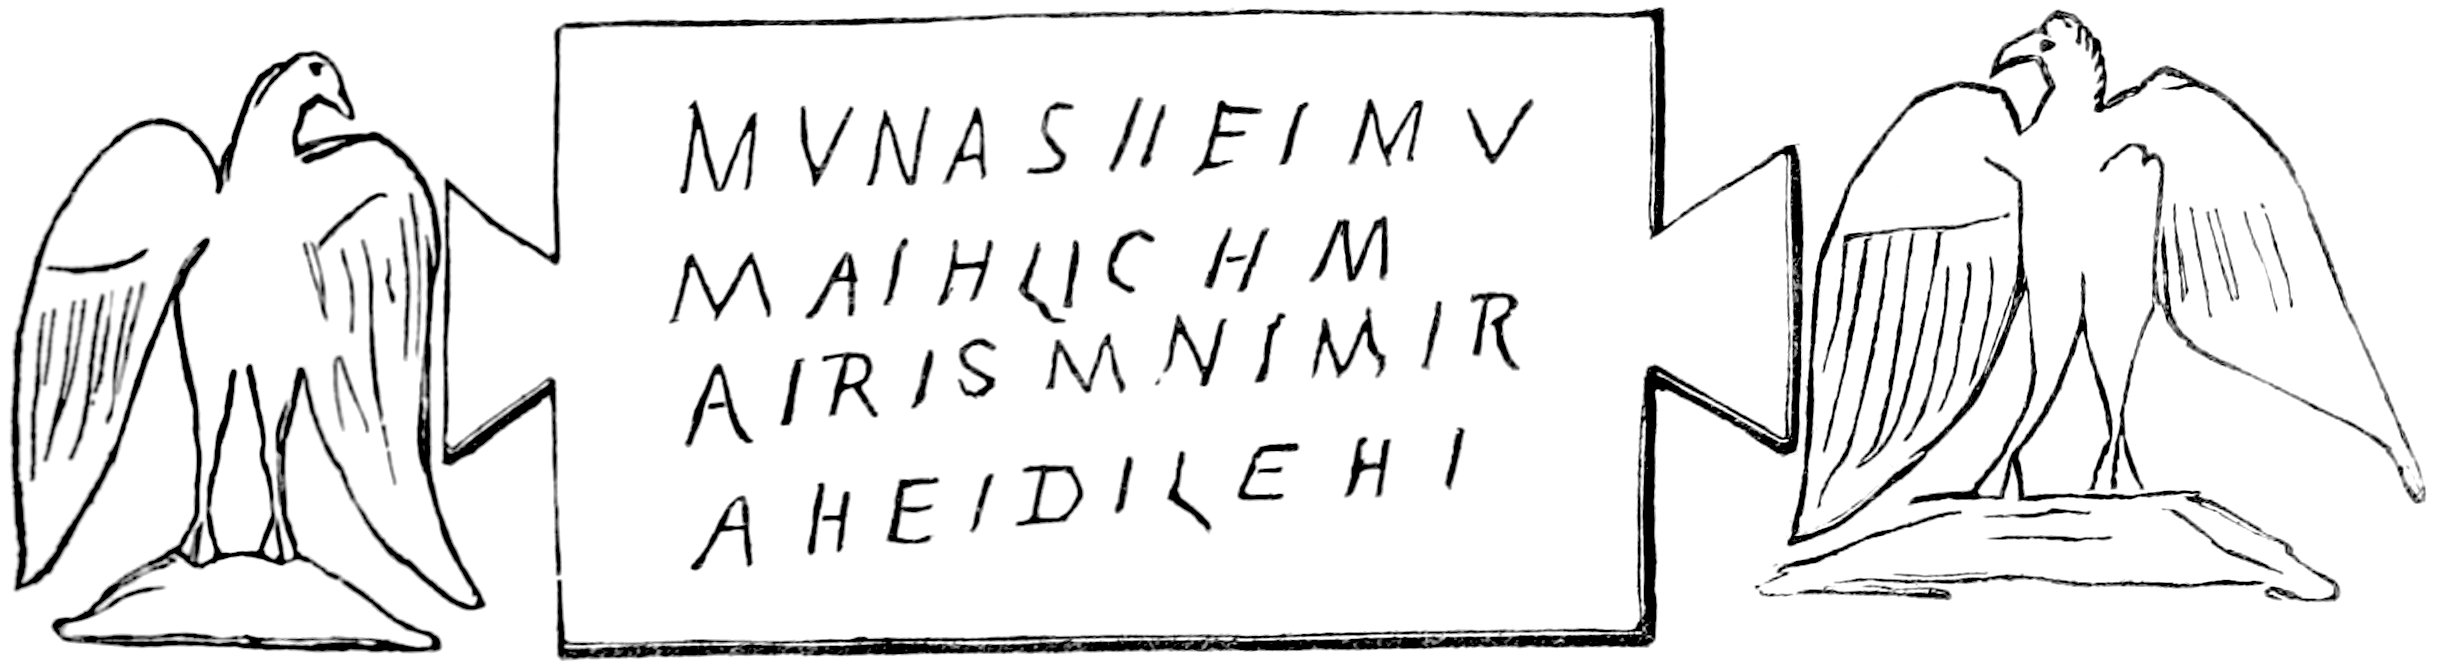 MVNASIIEIMV
MAIHLICHM
AIRISMNIMIR
AHEIDILEHI